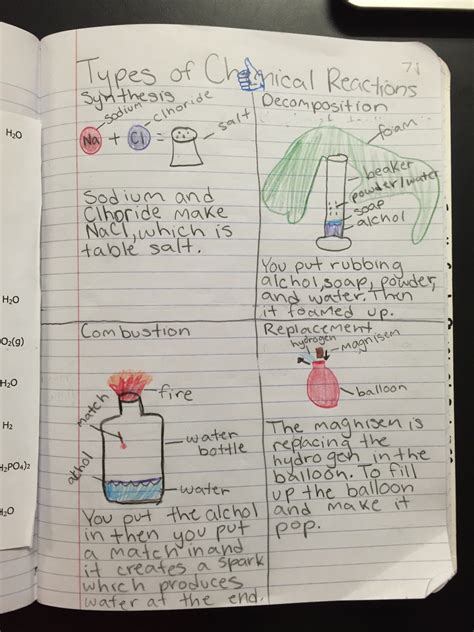 Types of Chemical Reactions
71
Synthesis
sodium
Clhoride
salt
Na + Cl =
Sodium and
Clhoride make
NaCl, which is
table salt.
Decomposition
foam
beaker
powder/water
soap
alchol
You put rubbing
alchol, soap, powder,
and water. Then
it foamed up.
Combustion
fire
match
water
bottle
alchol
water
You put the alchol
in then you put
a match in and
it creates a spark
which produces
water at the end.
Replacement
hydrogen
magnisen
balloon
The magnisen is
replacing the
hydrogen in the
balloon. To fill
up the balloon
and make it
pop.
H2O
H2O
O2(g)
H2O
H2
H2PO4)2
H2O